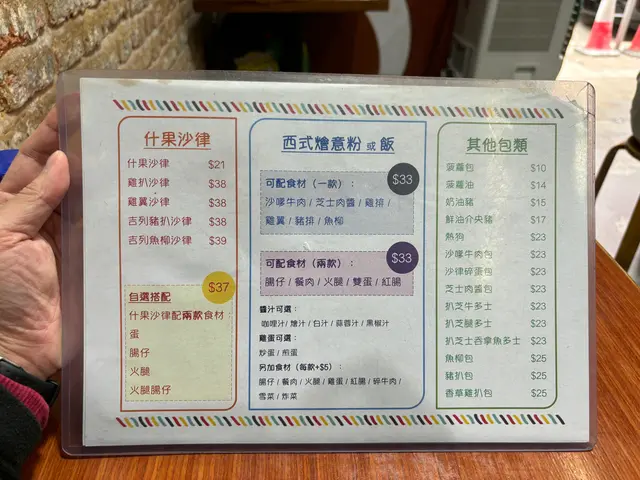 什果沙律
什果沙律 $21
雞扒沙律 $38
雞翼沙律 $38
吉列豬扒沙律 $38
吉列魚柳沙律 $39
$37
自選搭配
什果沙律配兩款食材：
蛋
腸仔
火腿
火腿腸仔
西式燴意粉 或 飯
$33
可配食材（一款）：
沙嗲牛肉 / 芝士肉醬 / 雞排 /
雞翼 / 豬排 / 魚柳
$33
可配食材（兩款）：
腸仔 / 餐肉 / 火腿 / 雙蛋 / 紅腸
醬汁可選：
咖喱汁 / 燴汁 / 白汁 / 蒜蓉汁 / 黑椒汁
雞蛋可選：
炒蛋 / 煎蛋
另加食材（每款+$5）：
腸仔 / 餐肉 / 火腿 / 雞蛋 / 紅腸 / 碎牛肉 /
雪菜 / 炸菜
其他包類
菠蘿包 $10
菠蘿油 $14
奶油豬 $15
鮮油介央豬 $17
熱狗 $23
沙嗲牛肉包 $23
沙律碎蛋包 $23
芝士肉醬包 $23
扒芝牛多士 $23
扒芝腿多士 $23
扒芝士吞拿魚多士 $23
魚柳包 $25
豬扒包 $25
香草雞扒包 $25